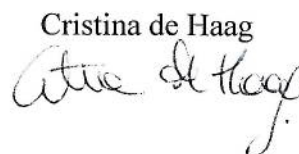 Cristina de Haag
de Haag